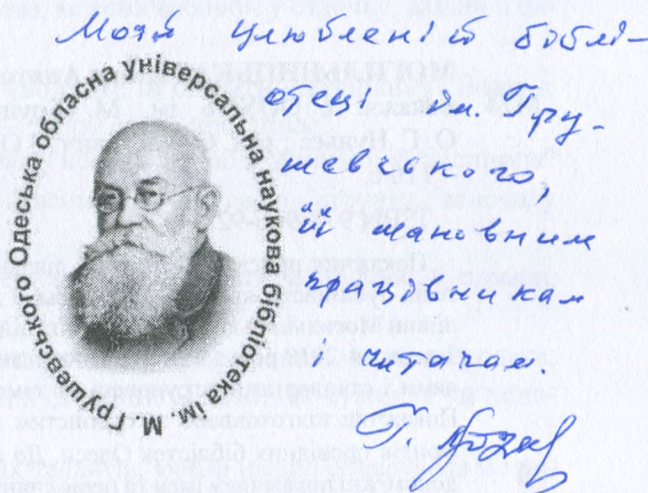 Моїй улюбленій біблі-
отеці ім. Гру-
шевського,
її шановним
працовникам
і читачам.
Одеська обласна універсальна наукова бібліотека ім. М. Грушевського